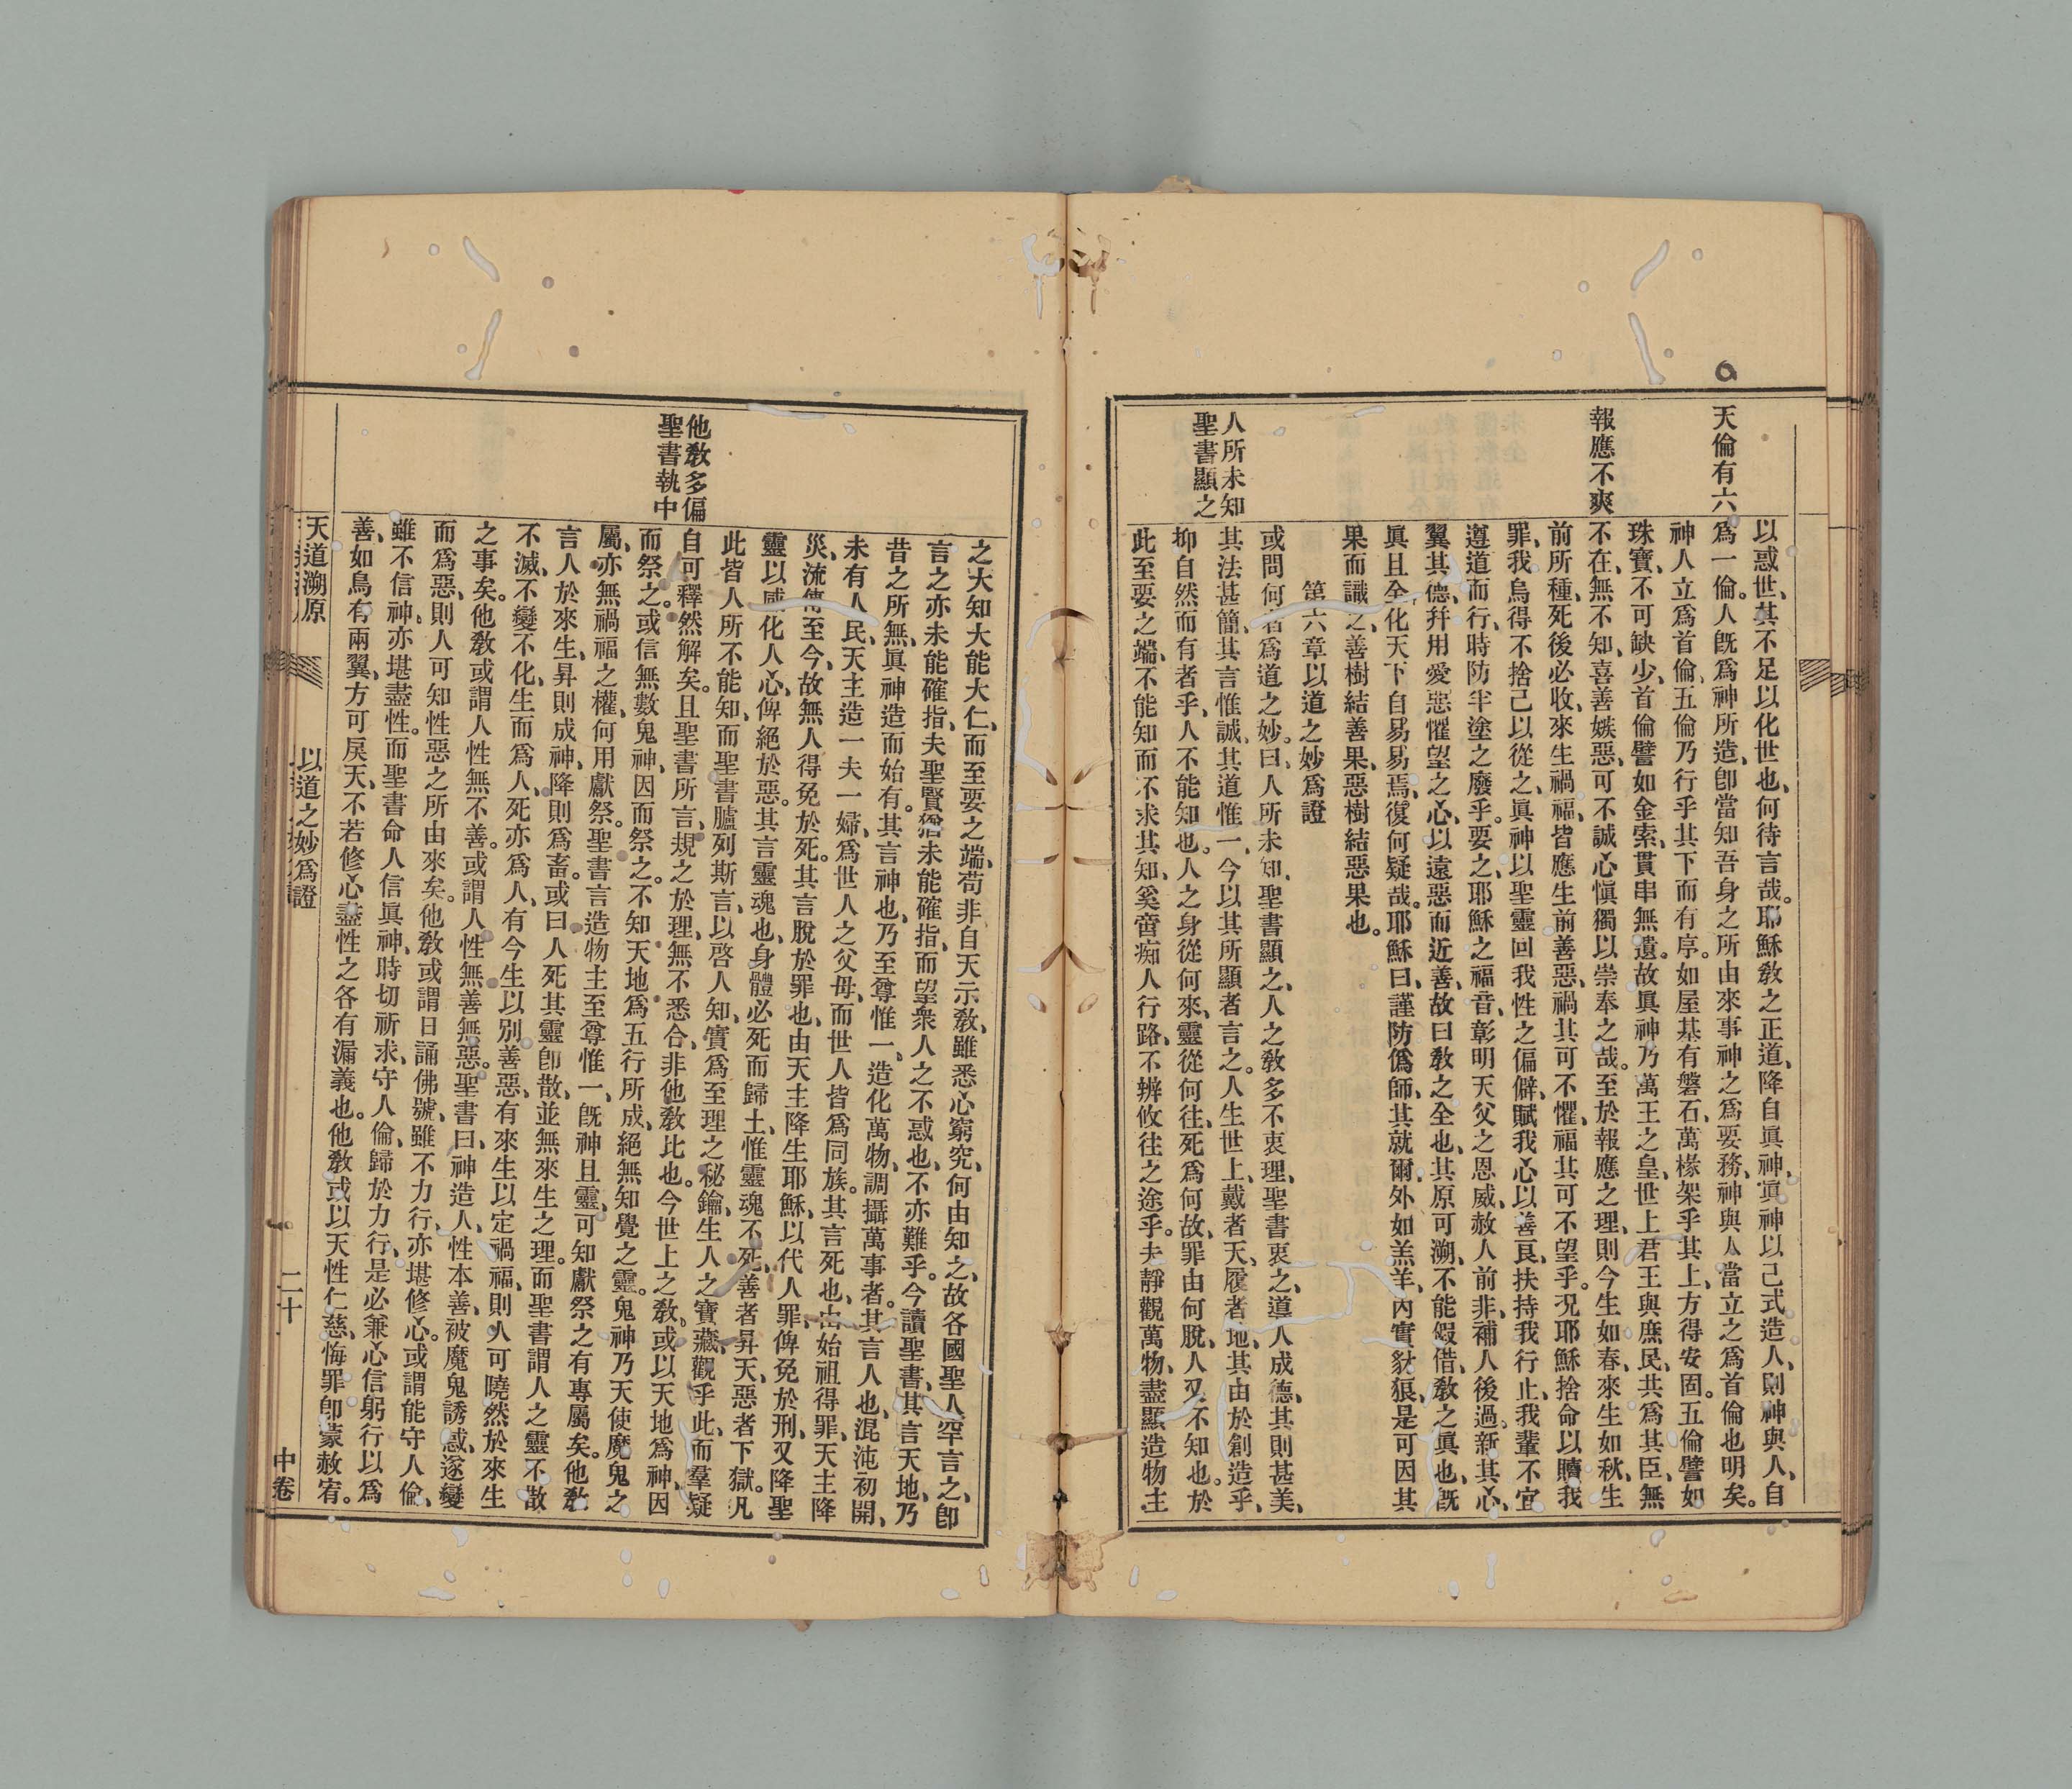 天倫有六
報應不爽
人所未知
聖書顯之
以惑世、其不足以化世也、何待言哉。耶穌敎之正道、降自眞神、眞神以己式造人、則神與人、自
爲一倫。人旣爲神所造、卽當知吾身之所由來、事神之爲要務、神與人當立之爲首倫也明矣。
神人立爲首倫、五倫乃行乎其下而有序。如屋基有磐石、萬椽架乎其上、方得安固。五倫譬如
珠寶、不可缺少、首倫譬如金索、貫串無遺。故眞神乃萬王之皇、世上君王與庶民、共爲其臣、無
不在、無不知、喜善嫉惡、可不誠心愼獨以崇奉之哉。至於報應之理、則今生如春、來生如秋、生
前所種、死後必收、來生禍福、皆應生前善惡、禍其可不懼、福其可不望乎。况耶穌捨命以贖我
罪、我烏得不捨己以從之、眞神以聖靈回我性之偏僻、賦我心以善良、扶持我行止、我輩不宜
遵道而行、時防半塗之廢乎。要之、耶穌之福音、彰明天父之恩威、赦人前非、補人後過、新其心、
翼其德、幷用愛惡懼望之心、以遠惡而近善、故曰敎之全也、其原可溯、不能假借、敎之眞也、旣
眞且全、化天下自易易焉、復何疑哉。耶穌曰、謹防僞師、其就爾、外如羔羊、內實豺狼、是可因其
果而識之、善樹結善果、惡樹結惡果也。
第六章以道之妙爲證
或問何者爲道之妙。曰、人所未知、聖書顯之、人之敎多不衷理、聖書衷之、道人成德、其則甚美、
其法甚簡、其言惟誠、其道惟一、今以其所顯者言之。人生世上、戴者天、履者地、其由於創造乎、
抑自然而有者乎、人不能知也。人之身從何來、靈從何往、死爲何故、罪由何脫、人又不知也。於
此至要之端、不能知而不求其知、奚啻痴人行路、不辨攸往之途乎。夫靜觀萬物、盡顯造物主
他敎多偏
聖書執中
之大知大能大仁、而至要之端、苟非自天示敎、雖悉心窮究、何由知之、故各國聖人罕言之、卽
言之亦未能確指、夫聖賢猶未能確指、而望衆人之不惑也、不亦難乎。今讀聖書、其言天地、乃
昔之所無、眞神造而始有。其言神也、乃至尊惟一、造化萬物、調攝萬事者。其言人也、混沌初開、
未有人民、天主造一夫一婦、爲世人之父母、而世人皆爲同族。其言死也、由始祖得罪、天主降
災、流傳至今、故無人得免於死。其言脫於罪也、由天主降生耶穌、以代人罪、俾免於刑、又降聖
靈以感化人心、俾絕於惡。其言靈魂也、身體必死而歸土、惟靈魂不死、善者昇天、惡者下獄。凡
此皆人所不能知、而聖書臚列斯言、以啓人知、實爲至理之秘鑰、生人之寶藏、觀乎此、而羣疑
自可釋然解矣。且聖書所言、規之於理、無不悉合、非他敎比也。今世上之敎、或以天地爲神、因
而祭之。或信無數鬼神、因而祭之。不知天地爲五行所成、絕無知覺之靈。鬼神乃天使魔鬼之
屬、亦無禍福之權、何用獻祭。聖書言造物主至尊惟一、旣神且靈、可知獻祭之有專屬矣。他敎
言人於來生、昇則成神、降則爲畜。或曰人死其靈卽散、並無來生之理。而聖書謂人之靈不散
不滅、不變不化、生而爲人、死亦爲人、有今生以別善惡、有來生以定禍福、則人可曉然於來生
之事矣。他敎或謂人性無不善。或謂人性無善無惡。聖書曰、神造人、性本善、被魔鬼誘惑、遂變
而爲惡、則人可知性惡之所由來矣。他敎或謂日誦佛號、雖不力行、亦堪修心。或謂能守人倫、
雖不信神、亦堪盡性。而聖書命人信眞神、時切祈求、守人倫、歸於力行、是必兼心信躬行以爲
善、如鳥有兩翼、方可戾天、不若修心盡性之各有漏義也。他敎或以天性仁慈、悔罪卽蒙赦宥。
天道溯原
以道之妙爲證
二十
中卷